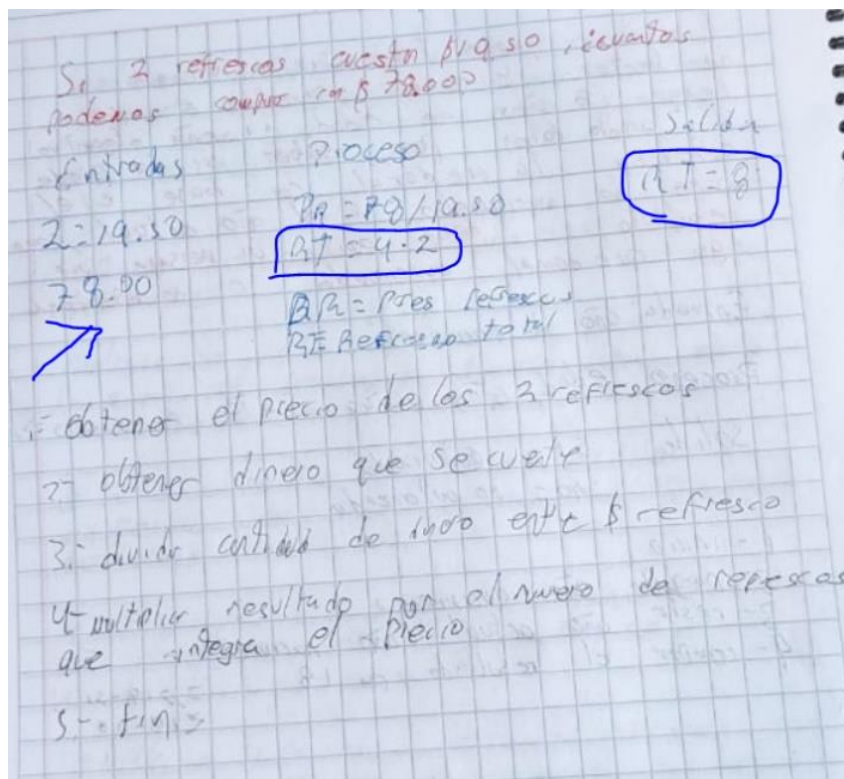 Si 2 refrescos cuestn $19.50, ¿cuantos
podemos comprar con $ 78.000
Entradas
Proceso
Salida
2=19.50
PR = 78/19.50
RT = 8
RT = 4·2
78.00
PR = Pres refrescos
RT= Refresco total
1.- obtener el precio de los 2 refrescos
2- obtener dinero que se
3.- dividir cantidad de entre $ refresco
4- multiplicar resultado por el numero de refrescos
que integra el precio
5-. fin.-